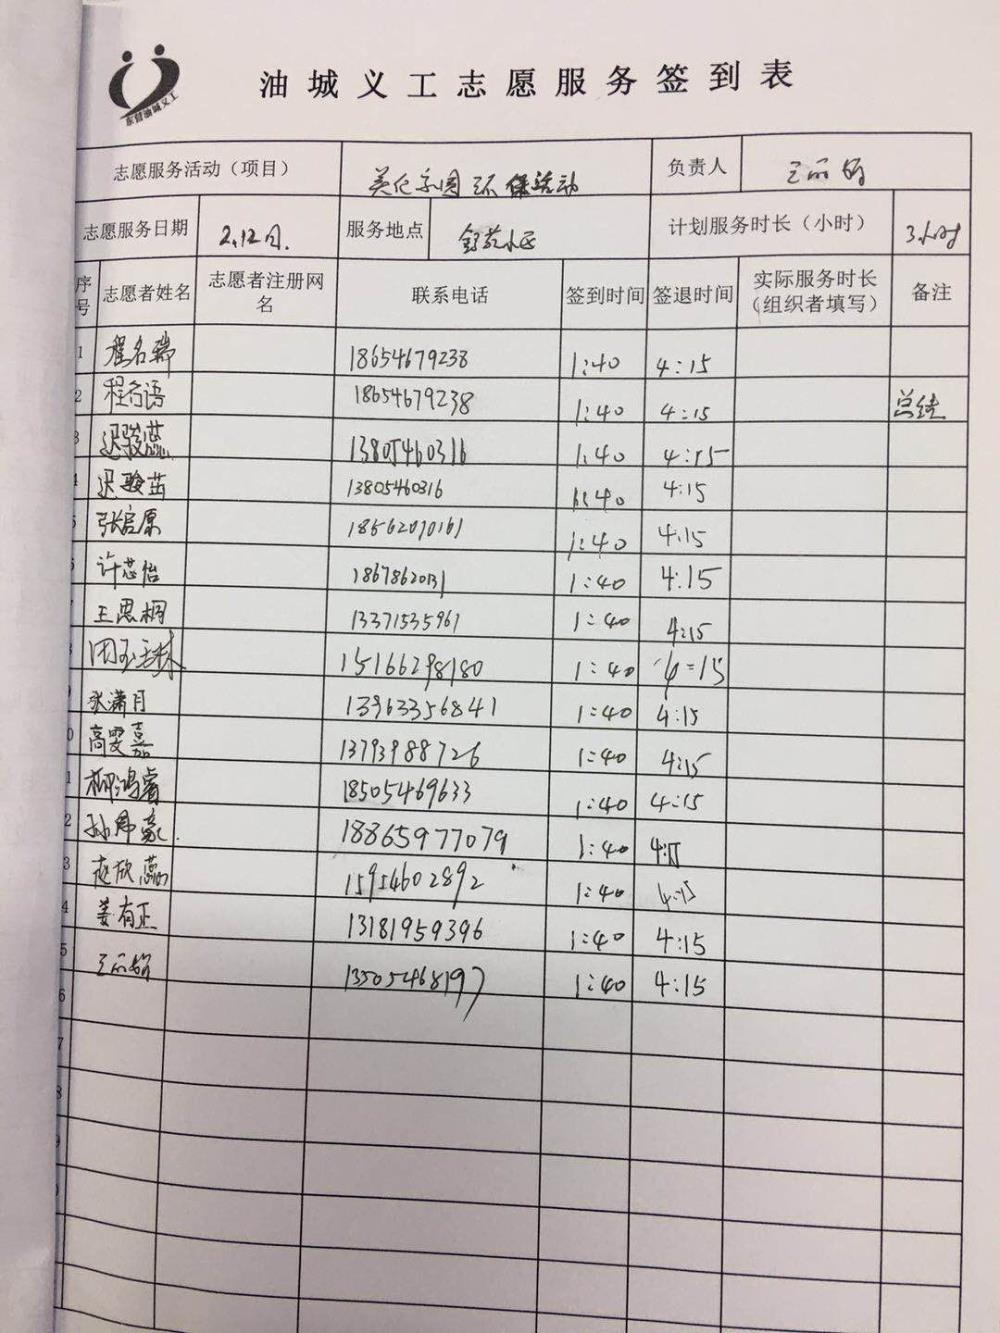 东营油城义工
油城义工志愿服务签到表
志愿服务活动（项目） 美化家园环保活动 负责人 王丽娟
志愿服务日期 2.12日. 服务地点 小区 计划服务时长（小时） 3小时
序号 志愿者姓名 志愿者注册网名 联系电话 签到时间 签退时间 实际服务时长（组织者填写） 备注
1 程名瑞 18654679238 1:40 4:15
2 程名语 18654679238 1:40 4:15 总结
3 迟骏蕊 13805460316 1:40 4:15
4 迟骏茁 13805460316 1:40 4:15
5 张启原 18562070161 1:40 4:15
6 许芯怡 18678620131 1:40 4:15
7 王思桐 13371535961 1:40 4:15
8 15166298180 1:40 4=15
9 张潇月 13963356841 1:40 4:15
0 高雯嘉 13793988726 1:40 4:15
1 柳鸿睿 18505469633 1:40 4:15
2 孙豪. 18865977079 1:40 4:15
3 赵欣蕊 15954602892 1:40 4:15
4 姜有正 13181959396 1:40 4:15
5 王丽娟 13505468197 1:40 4:15
6
7
8
9
0